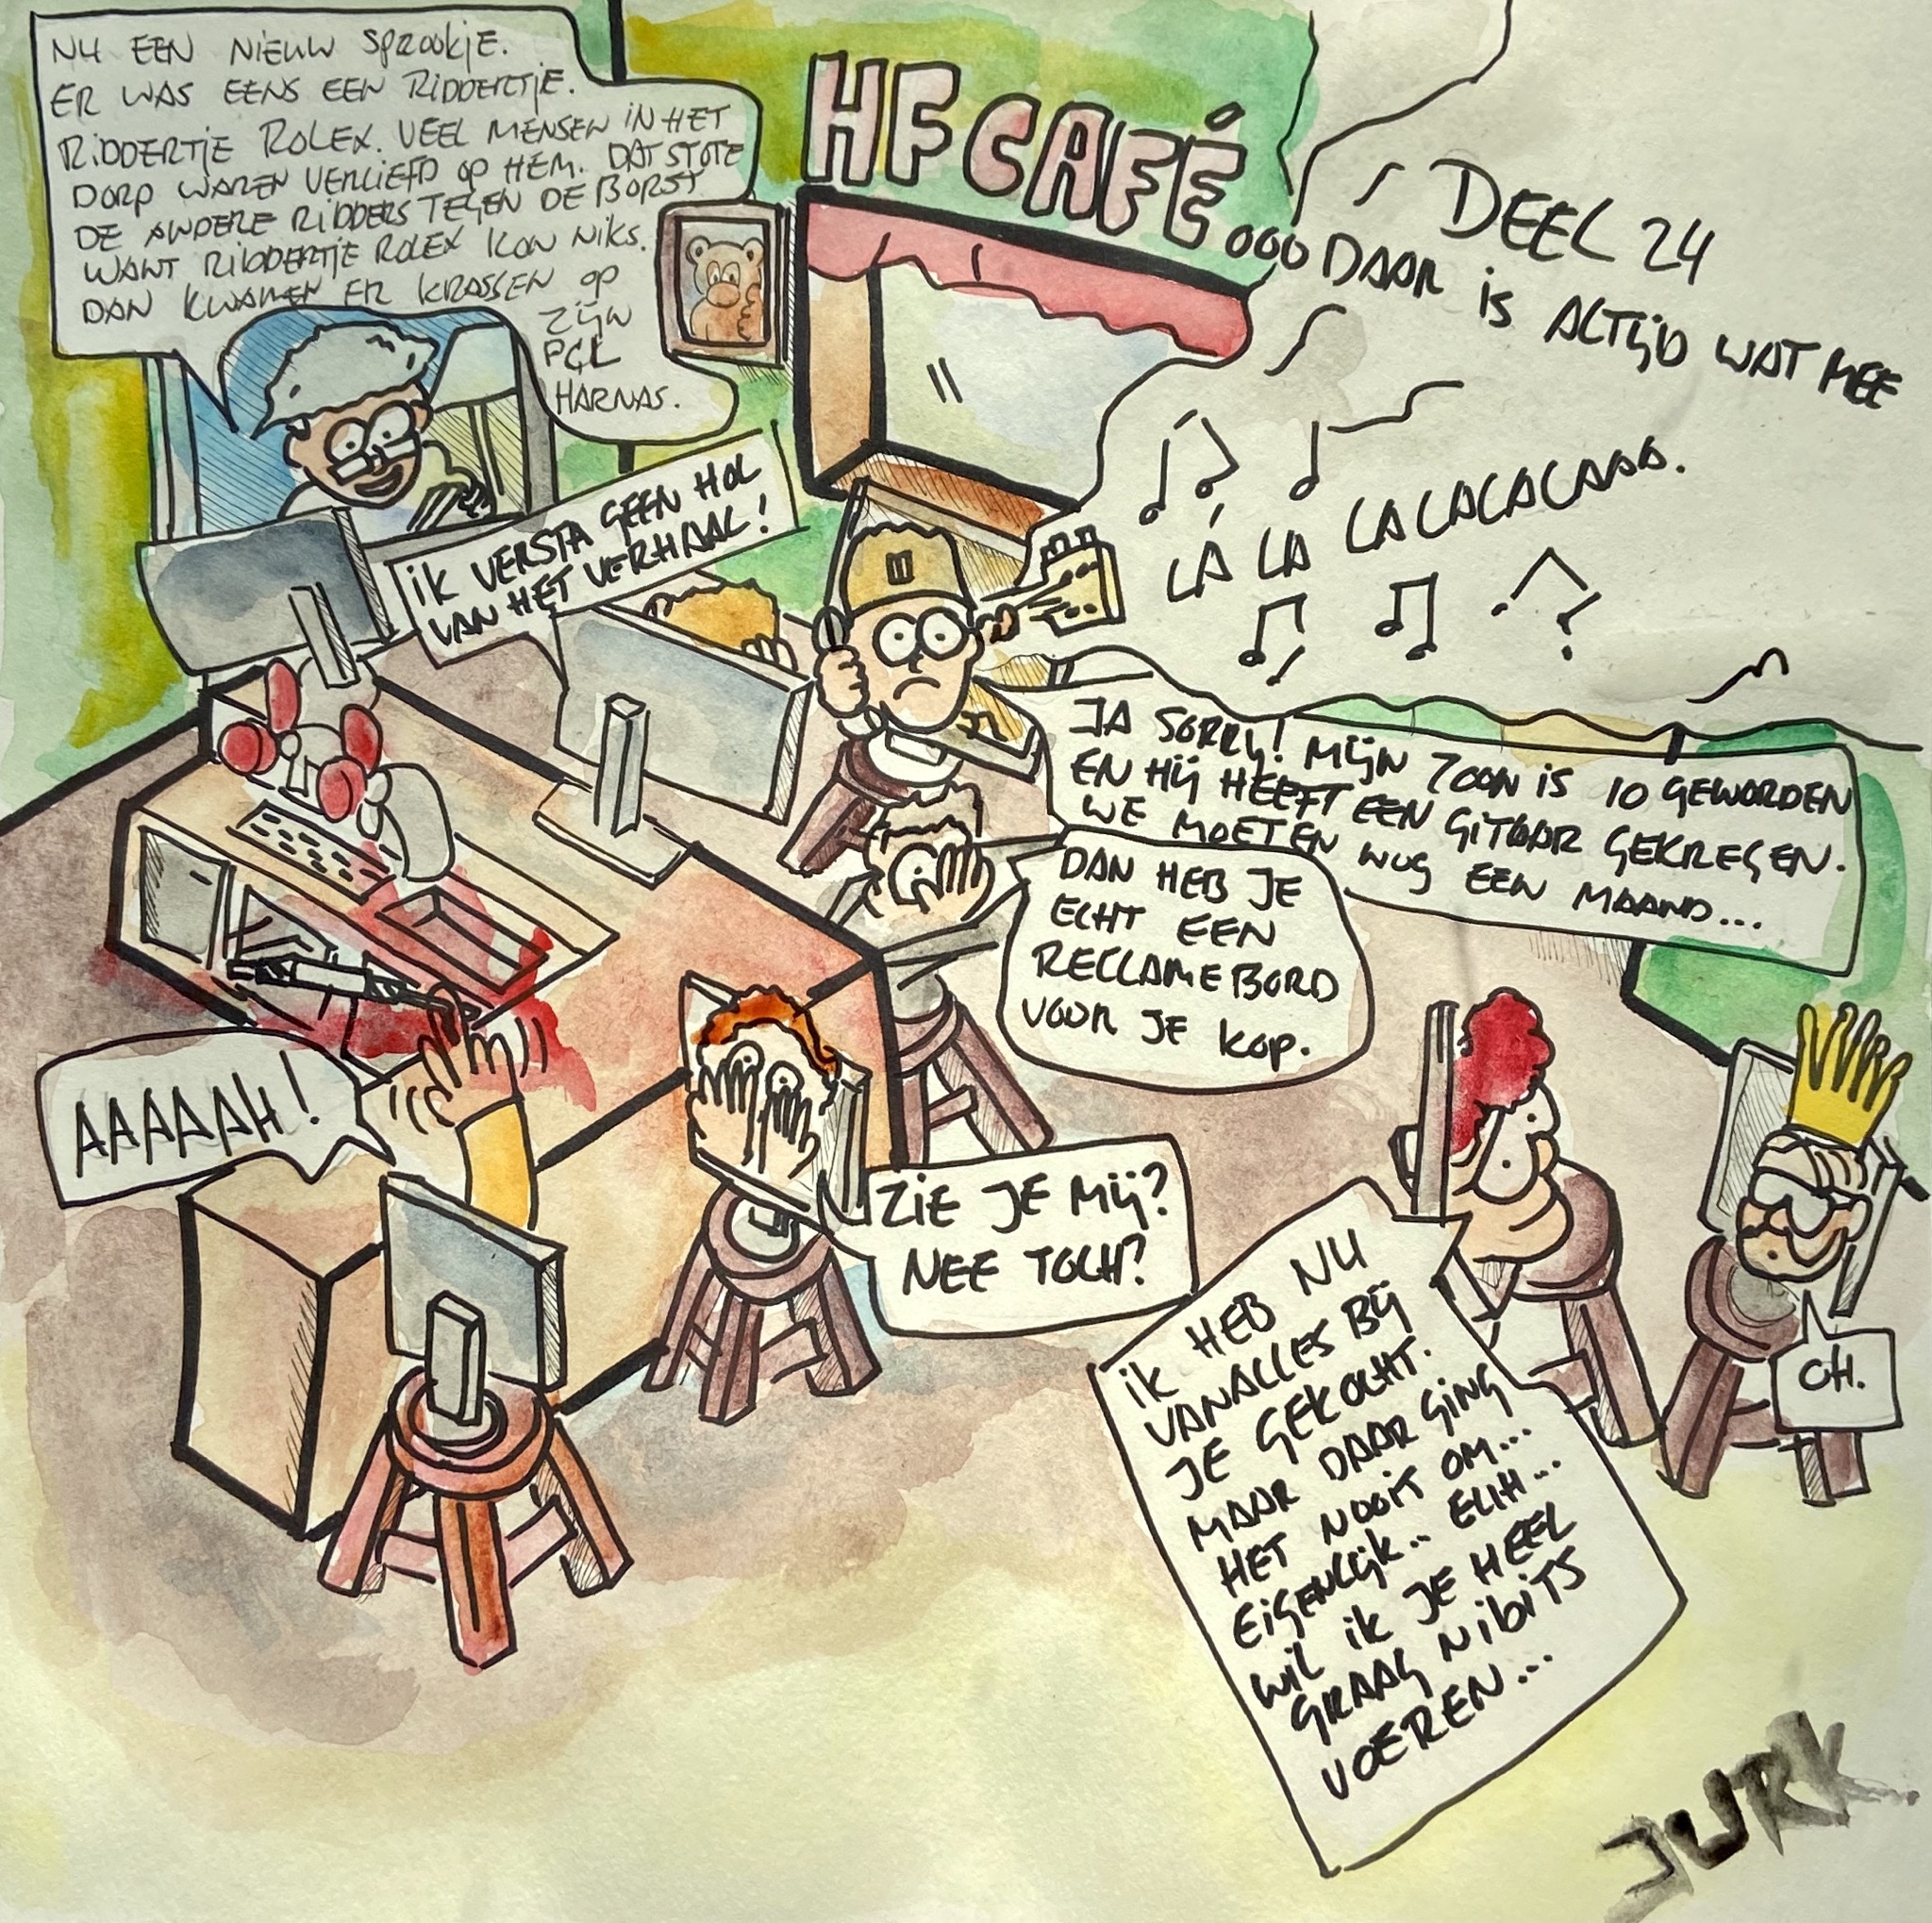 NU EEN NIEUW SPROOKJE.
ER WAS EENS EEN RIDDERTJE.
RIDDERTJE ROLEX. VEEL MENSEN IN HET
DORP WAREN VERLIEFD OP HEM. DAT STOTE
DE ANDERE RIDDERS TEGEN DE BORST
WANT RIDDERTJE ROLEX KON NIKS.
DAN KWAMEN ER KRASSEN OP
ZIJN
PCL
HARNAS.
HF CAFÉ
DEEL 24
...DAAR IS ALTIJD WAT MEE
IK VERSTA GEEN HOL
VAN HET VERHAAL!
LÁ LA LALALALAAA.
JA SORRY! MIJN ZOON IS 10 GEWORDEN
EN HIJ HEEFT EEN GITAAR GEKREGEN.
WE MOETEN NOG EEN MAAND...
DAN HEB JE
ECHT EEN
RECLAMEBORD
VOOR JE KOP.
AAAAAH!
ZIE JE MIJ?
NEE TOCH?
IK HEB NU
VANALLES BIJ
JE GEKOCHT.
MAAR DAAR GING
HET NOOIT OM...
EIGENLIJK.. EUH...
WIL IK JE HEEL
GRAAG NIBITS
VOEREN...
OH.
JURK.